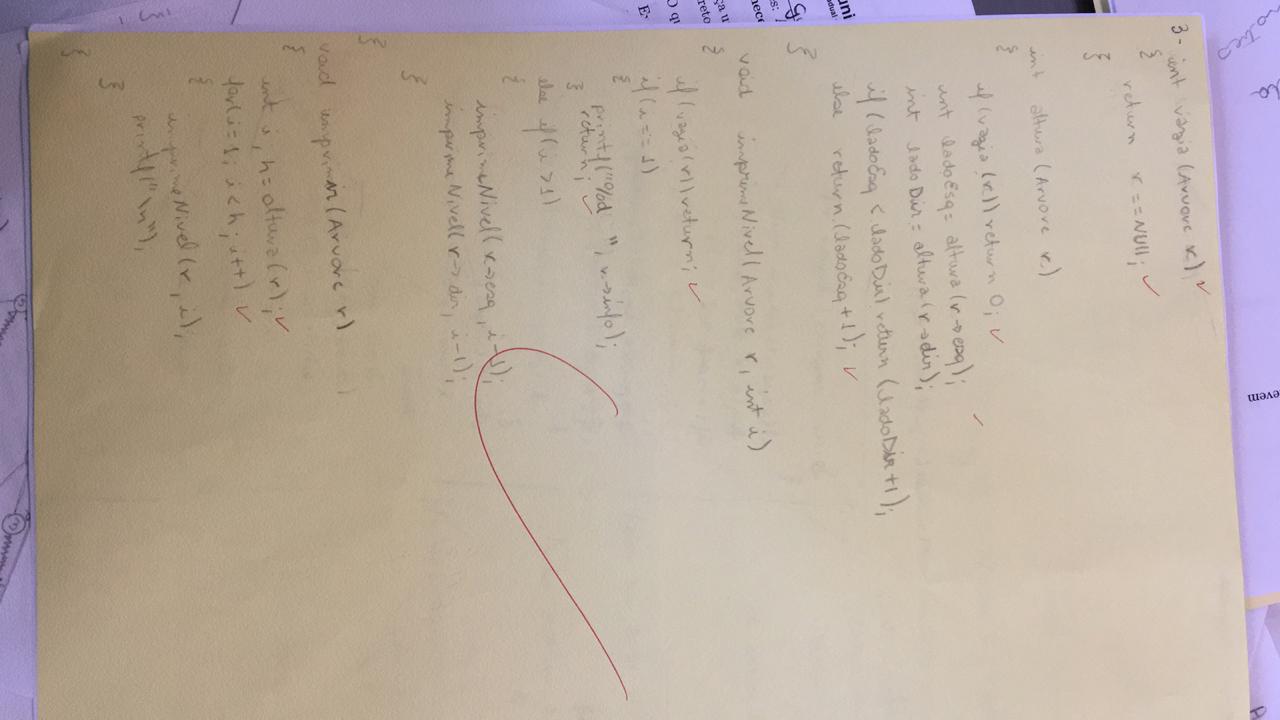 notres
da
evem
3- int vazia (Arvore r)
{
return r == NULL;
}
int altura (Arvore r)
{
if (vazia (r)) return 0;
int ladoEsq = altura (r->esq);
int ladoDir = altura (r->dir);
if (ladoEsq < ladoDir) return (ladoDir + 1);
else return (ladoEsq + 1);
}
void imprimeNivel (Arvore r, int i)
{
if (vazia (r)) return;
if (i == 1)
{
printf ("%d ", r->info);
return;
}
else if (i > 1)
{
imprimeNivel (r->esq, i-1);
imprimeNivel (r->dir, i-1);
}
}
void imprimir (Arvore r)
{
int i, h = altura (r);
for (i=1; i < h; i++)
{
imprimeNivel (r, i);
printf ("\n");
}
}
uni
adual
es:
nece
ça u
reto
O qu